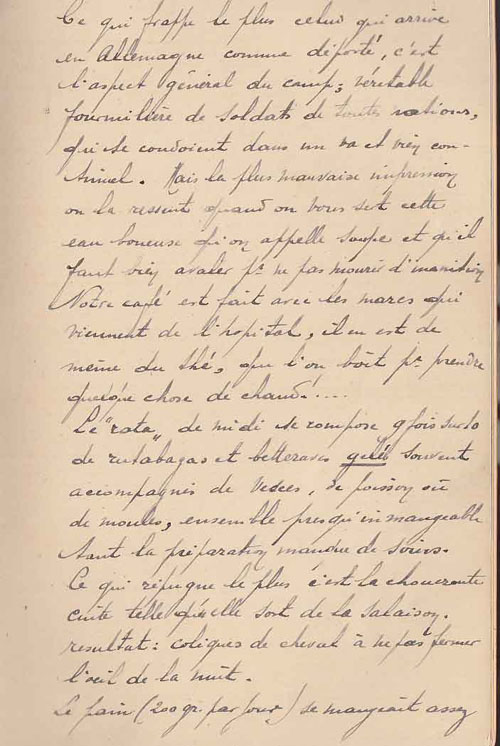 Ce qui frappe le plus celui qui arrive
en Allemagne comme déporté, c'est
l'aspect général du camp; véritable
fourmilière de soldats de toutes nations,
qui se coudoient dans un va et vien con-
tinuel. Mais la plus mauvaise impression
on la ressent quand on vous sert cette
eau boueuse qu'on appelle soupe et qu'il
faut bien avaler pr ne pas mourir d'inanition
Notre café est fait avec les marcs qui
viennent de l'hopital, il en est de
même du thé, que l'on boit pr prendre
quelque chose de chaud!....
Le "rata" de midi se compose 9 fois sur 10
de rutabagas et betteraves gelés souvent
accompagnés de vesces, de poisson ou
de moules, ensemble presqu'inmangeable
tant la préparation manque de soins.
Ce qui répugne le plus c'est la choucroute
cuite telle qu'elle sort de la salaison.
resultat: coliques de cheval à ne pas fermer
l'oeil de la nuit.
Le pain (200 gr. par jour) se mangeait assez